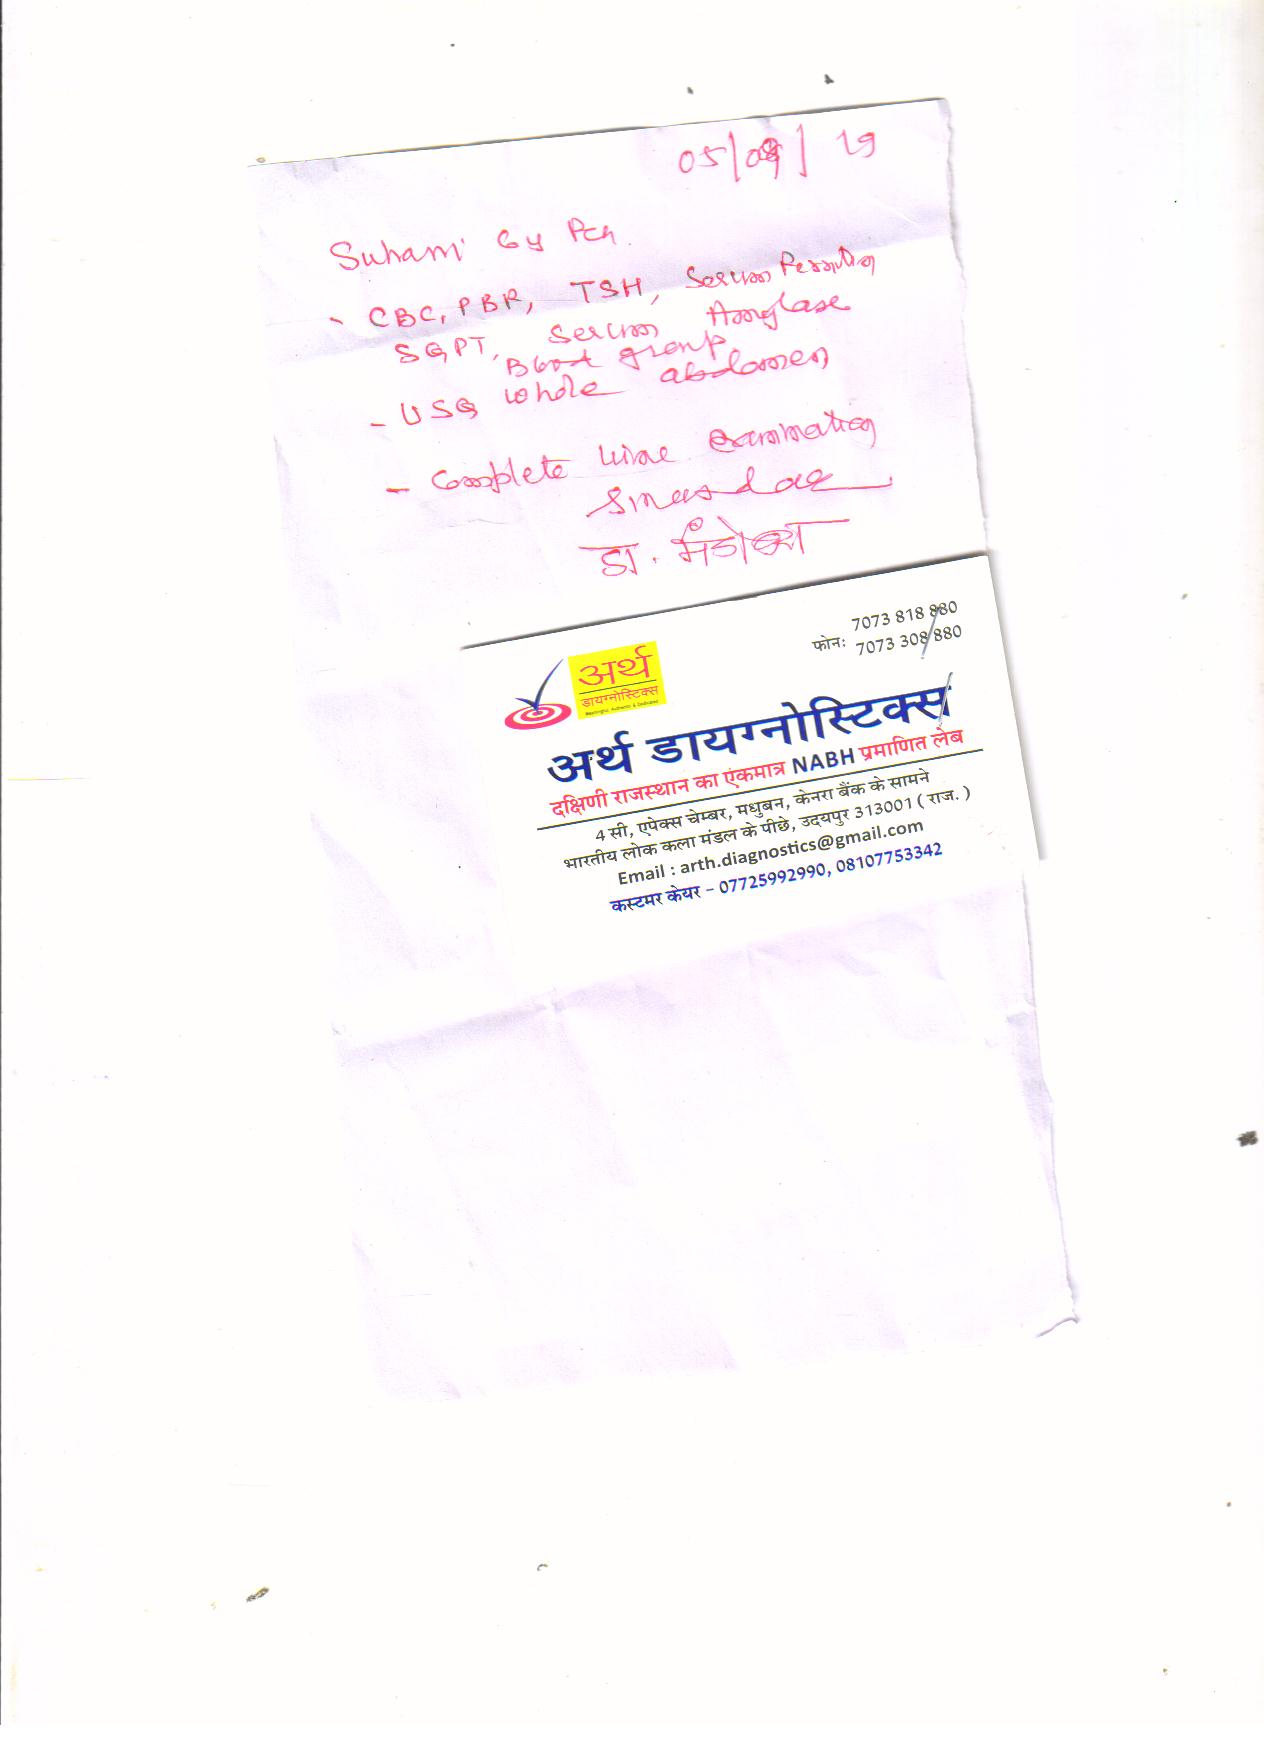 05/08/19
Suhani 6y
- CBC, PBF, TSH, Serum Ferritin
SGPT, Serum Amylase
Blood group
- USG whole abdomen
- Complete Urine examination
डा.
7073 818 880
फोनः 7073 308 880
अर्थ
डायग्नोस्टिक्स
अर्थ डायग्नोस्टिक्स
दक्षिणी राजस्थान का एकमात्र NABH प्रमाणित लेब
4 सी, एपेक्स चेम्बर, मधुबन, केनरा बैंक के सामने
भारतीय लोक कला मंडल के पीछे, उदयपुर 313001 ( राज. )
Email : arth.diagnostics@gmail.com
कस्टमर केयर – 07725992990, 08107753342